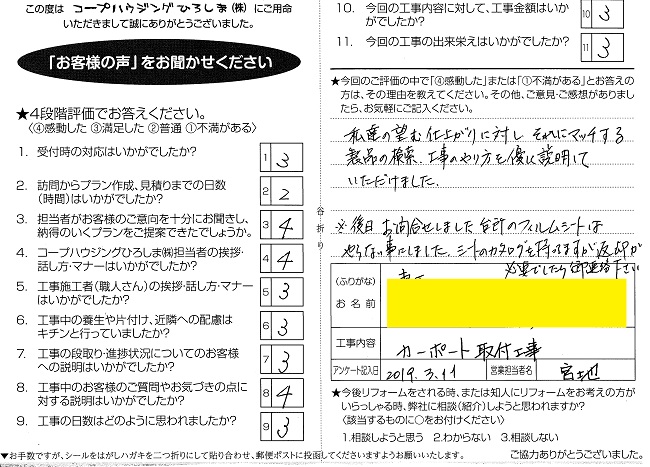 この度は コープハウジングひろしま(株) にご用命
いただきまして誠にありがとうございました。
「お客様の声」をお聞かせください
★4段階評価でお答えください。
〈④感動した ③満足した ②普通 ①不満がある〉
1. 受付時の対応はいかがでしたか? 1 3
2. 訪問からプラン作成、見積りまでの日数
(時間)はいかがでしたか? 2 2
3. 担当者がお客様のご意向を十分にお聞きし、
納得のいくプランをご提案できたでしょうか。 3 4
4. コープハウジングひろしま㈱担当者の挨拶・
話し方・マナーはいかがでしたか? 4 4
5. 工事施工者(職人さん)の挨拶・話し方・マナー
はいかがでしたか? 5 3
6. 工事中の養生や片付け、近隣への配慮は
キチンと行っていましたか? 6 3
7. 工事の段取り・進捗状況についてのお客様
への説明はいかがでしたか? 7 3
8. 工事中のお客様のご質問やお気づきの点に
対する説明はいかがでしたか? 8 4
9. 工事の日数はどのように思われましたか? 9 3
▼お手数ですが、シールをはがしハガキを二つ折りにして貼り合わせ、郵便ポストに投函してくださいますようお願いいたします。
谷折り
10. 今回の工事内容に対して、工事金額はいか
がでしたか? 10 3
11. 今回の工事の出来栄えはいかがでしたか? 11 3
★今回のご評価の中で「④感動した」または「①不満がある」とお答えの
方は、その理由を教えてください。その他、ご意見・ご感想がありまし
たら、お気軽にご記入ください。
私達の望む仕上がりに対し それにマッチする
製品の検索、工事のやり方を優しく説明して
いただけました。
※後日 お問合せしました 台所のフィルムシートは
やらない事にしました。シートのカタログを持ってますが返却が
必要でしたら御連絡下さい
(ふりがな)
お 名 前
工事内容 カーポート取付工事
アンケート記入日 2019. 3. 11 営業担当者名 宮地
★今後リフォームをされる時、または知人にリフォームをお考えの方が
いらっしゃる時、弊社に相談(紹介)しようと思われますか?
〈該当するものに○をお付けください〉
1.相談しようと思う 2.わからない 3.相談しない
ご協力ありがとうございました。